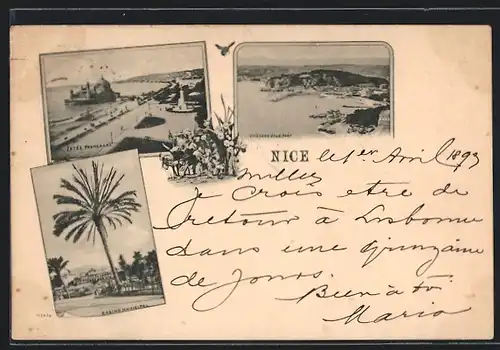 JETÉE PROMENADE
NICE le 1er Avril 1893
Je crois etre de
retour à Lisbonne
dans une quinzaine
de jours.
Bien à toi
Mario
CASINO MUNICIPAL